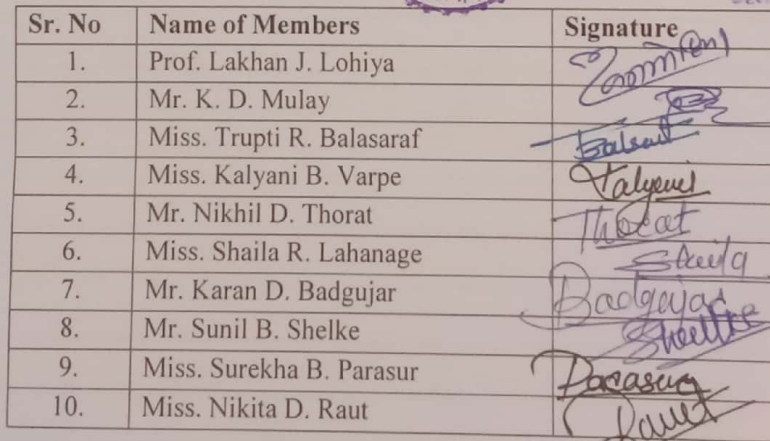 Sr. No Name of Members Signature
1. Prof. Lakhan J. Lohiya
2. Mr. K. D. Mulay
3. Miss. Trupti R. Balasaraf
4. Miss. Kalyani B. Varpe Kalyani
5. Mr. Nikhil D. Thorat Thorat
6. Miss. Shaila R. Lahanage Shaila
7. Mr. Karan D. Badgujar Badgujar
8. Mr. Sunil B. Shelke Shelke
9. Miss. Surekha B. Parasur Parasur
10. Miss. Nikita D. Raut Raut